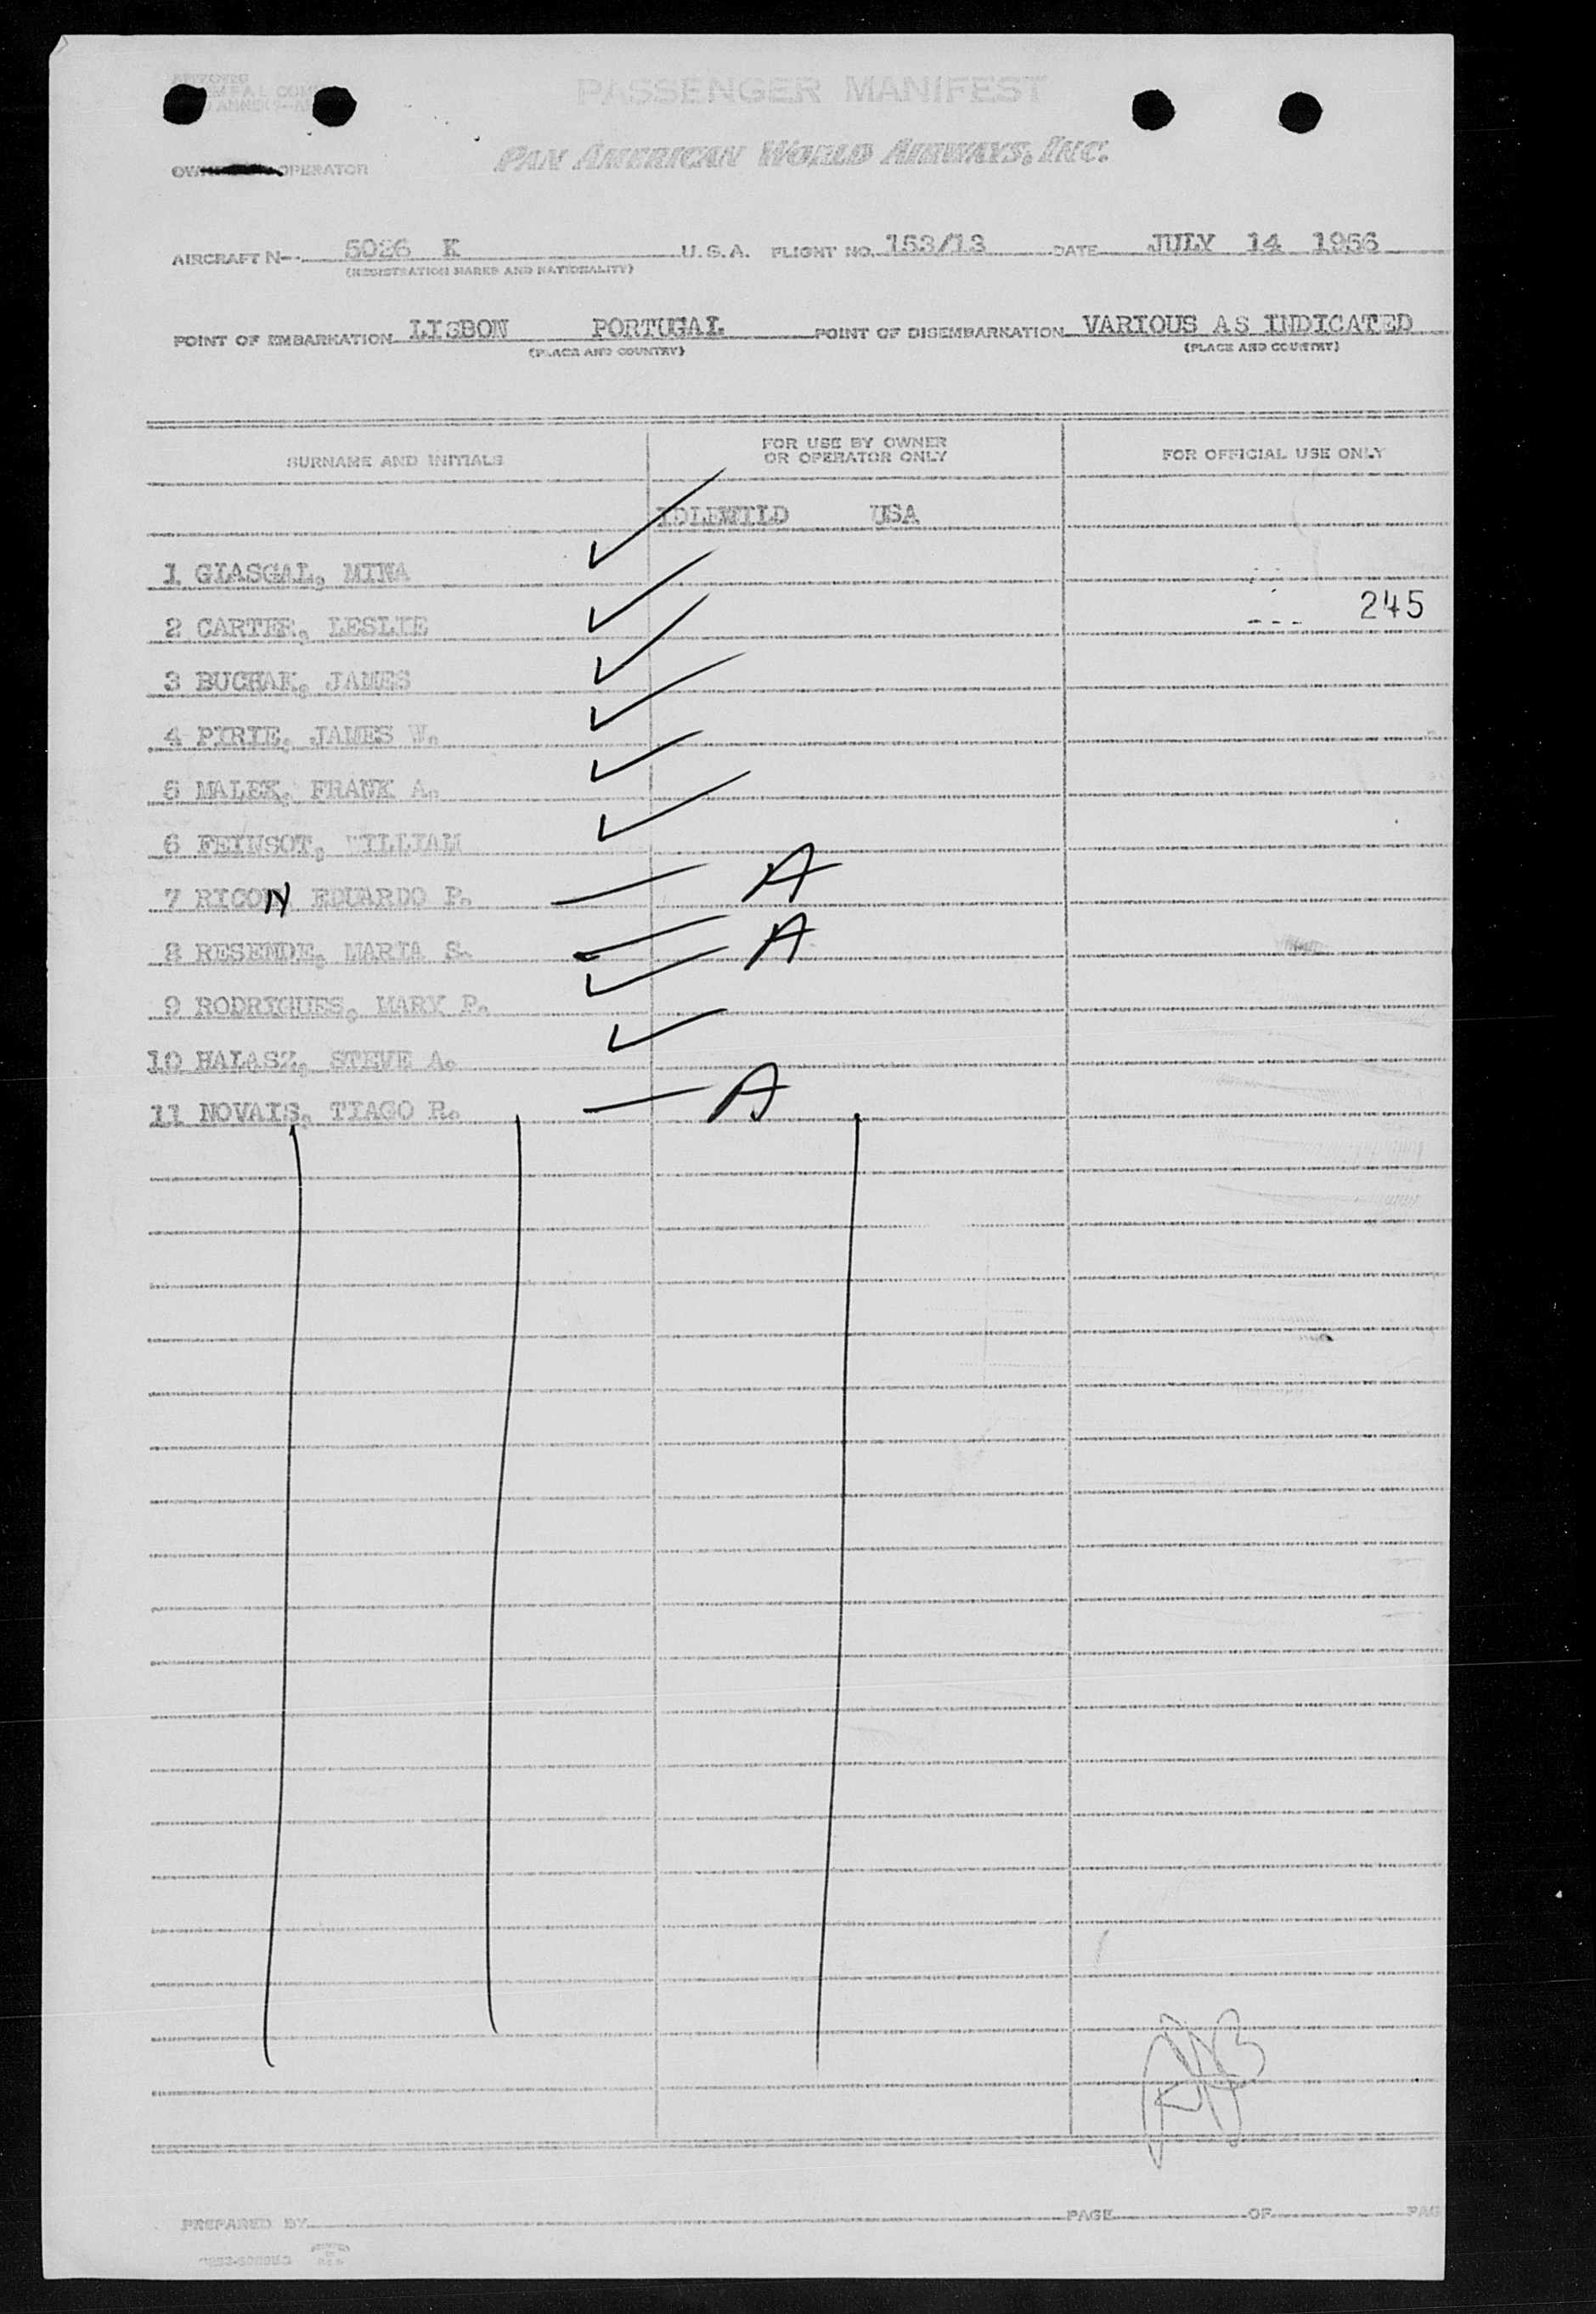 APPROVED
PASSENGER MANIFEST
OPERATOR
PAN AMERICAN WORLD AIRWAYS, INC.
AIRCRAFT N- 5026 K U.S.A. FLIGHT NO. 153/13 DATE JULY 14 1956
(REGISTRATION MARKS AND NATIONALITY)
POINT OF EMBARKATION LISBON PORTUGAL POINT OF DISEMBARKATION VARIOUS AS INDICATED
(PLACE AND COUNTRY) (PLACE AND COUNTRY)
SURNAME AND INITIALS FOR USE BY OWNER OR OPERATOR ONLY FOR OFFICIAL USE ONLY
IDLEWILD USA
1 GLASGAL, MINA
245
2 CARTER, LESLIE
3 BUCHAK, JAMES
4 PIRIE, JAMES W.
5 MALEK, FRANK A.
6 FEINSOT, WILLIAM
7 RICON EDUARDO P. A
8 RESENDE, MARIA S. A
9 RODRIGUES, MARY P.
10 HALASZ, STEVE A.
11 NOVAIS, TIAGO R. A
PREPARED BY PAGE OF PAG